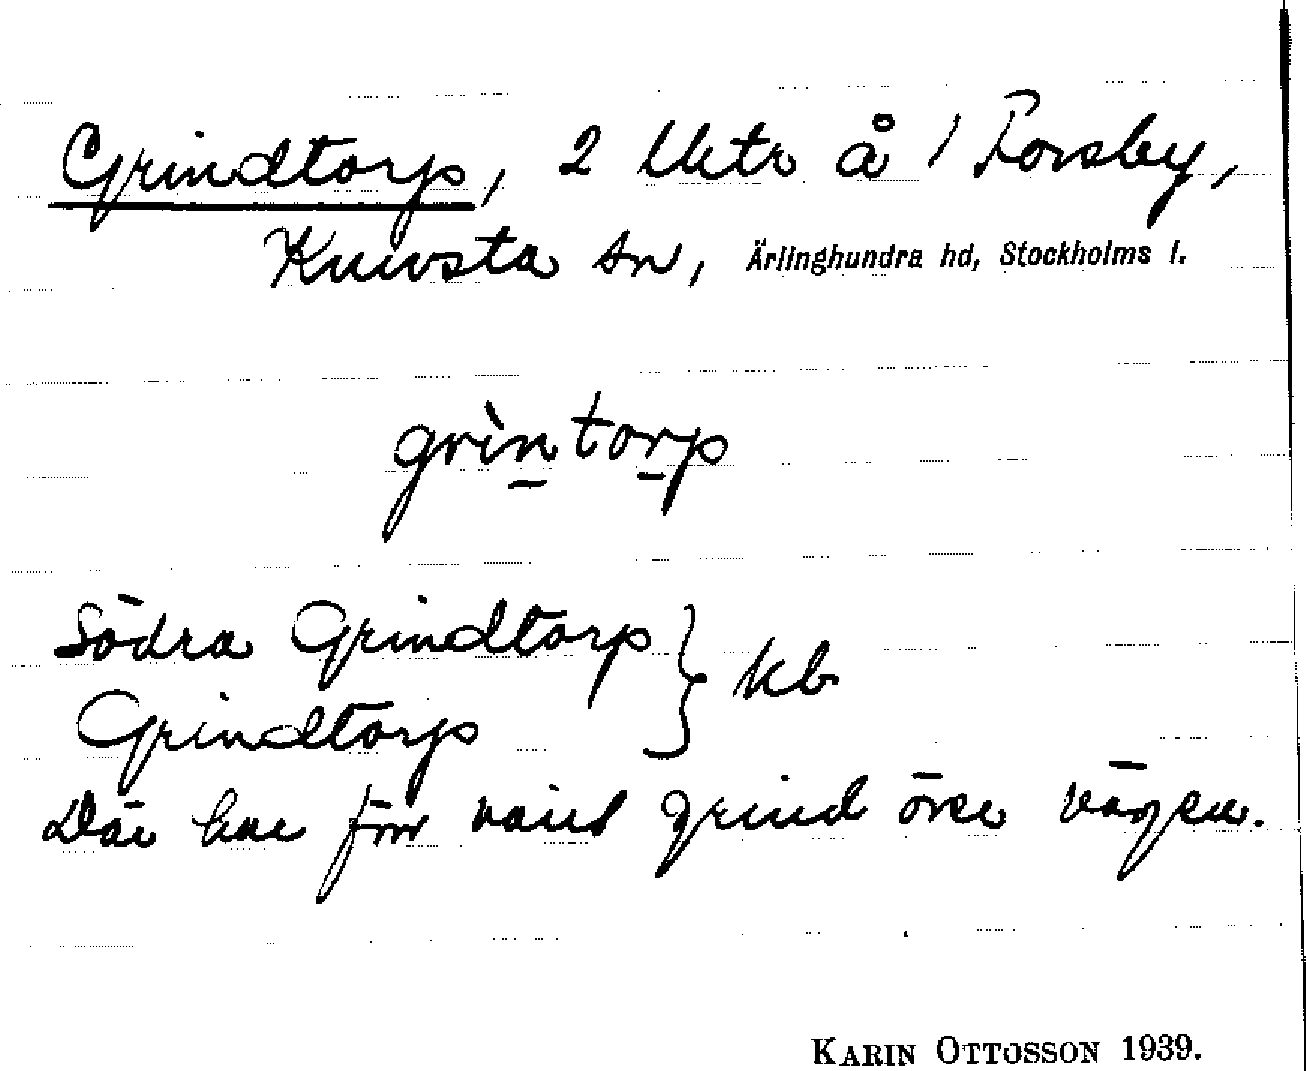 Grindtorp, 2 lktr å 1 Forsby,
Knivsta sn, Ärlinghundra hd, Stockholms l.
grìntorp
Södra Grindtorp } kb
Grindtorp
Där har förr varit grind över vägen.
KARIN OTTOSSON 1939.